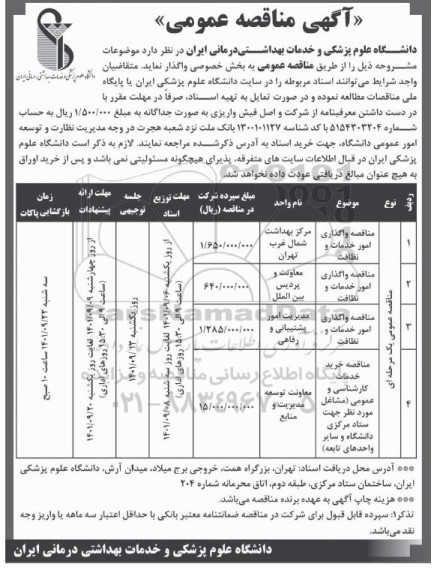 «آگهی مناقصه عمومی»
دانشگاه علوم پزشکی و خدمات بهداشتی درمانی ایران
دانشگاه علوم پزشکی و خدمات بهداشتی‌درمانی ایران در نظر دارد موضوعات
مشروحه ذیل را از طریق مناقصه عمومی به بخش خصوصی واگذار نماید. متقاضیان
واجد شرایط می‌توانند اسناد مربوطه را در سایت دانشگاه علوم پزشکی ایران یا پایگاه
ملی مناقصات مطالعه نموده و در صورت تمایل به تهیه اسناد، صرفاً در مهلت مقرر با
در دست داشتن معرفینامه از شرکت و اصل فیش واریزی به صورت جداگانه به مبلغ ۱/۵۰۰/۰۰۰ ریال به حساب
شماره ۵۱۵۴۳۰۳۲۰۴ با کد شناسه ۱۳۰۰۱۰۱۱۲۷ بانک ملت نزد شعبه هجرت در وجه مدیریت نظارت و توسعه
امور عمومی دانشگاه، جهت خرید اسناد به آدرس ذکرشده مراجعه نمایند. لازم به ذکر است دانشگاه علوم
پزشکی ایران در قبال اطلاعات سایت های متفرقه، پذیرای هیچگونه مسئولیتی نمی باشد و پس از خرید اوراق
به هیچ عنوان مبالغ دریافتی عودت داده نخواهد شد.
ردیف نوع موضوع نام واحد مبلغ سپرده شرکت در مناقصه (ریال) مهلت توزیع اسناد جلسه توجیهی مهلت ارائه پیشنهادات زمان بازگشایی پاکات
مناقصه عمومی یک مرحله ای
۱ مناقصه واگذاری امور خدمات و نظافت مرکز بهداشت شمال غرب تهران ۱/۶۵۰/۰۰۰/۰۰۰
۲ مناقصه واگذاری امور خدمات و نظافت معاونت و پردیس بین الملل ۶۴۰/۰۰۰/۰۰۰
۳ مناقصه واگذاری امور خدمات و نظافت مدیریت امور پشتیبانی و رفاهی ۱/۲۸۵/۰۰۰/۰۰۰
۴ مناقصه خرید خدمات کارشناسی و عمومی (مشاغل مورد نظر جهت ستاد مرکزی دانشگاه و سایر واحدهای تابعه) معاونت توسعه مدیریت و منابع ۱۵/۰۰۰/۰۰۰/۰۰۰
از روز یکشنبه ۱۴۰۱/۰۹/۰۶ لغایت روز سه شنبه ۱۴۰۱/۰۹/۰۸ (ساعت ۹ الی ۱۵:۳۰ روزهای اداری)
روز یکشنبه ۱۴۰۱/۰۹/۱۳
از روز چهارشنبه ۱۴۰۱/۰۹/۰۹ لغایت روز یکشنبه ۱۴۰۱/۰۹/۲۰ (ساعت ۹ الی ۱۵:۳۰ روزهای اداری)
سه شنبه ۱۴۰۱/۰۹/۲۲ ساعت ۱۰ صبح
*** آدرس محل دریافت اسناد: تهران، بزرگراه همت، خروجی برج میلاد، میدان آرش، دانشگاه علوم پزشکی
ایران، ساختمان ستاد مرکزی، طبقه دوم، اتاق محرمانه شماره ۲۰۴
*** هزینه چاپ آگهی به عهده برنده مناقصه می‌باشد.
تذکر۱: سپرده قابل قبول برای شرکت در مناقصه ضمانتنامه معتبر بانکی با حداقل اعتبار سه ماهه یا واریز وجه
نقد می‌باشد.
دانشگاه علوم پزشکی و خدمات بهداشتی درمانی ایران